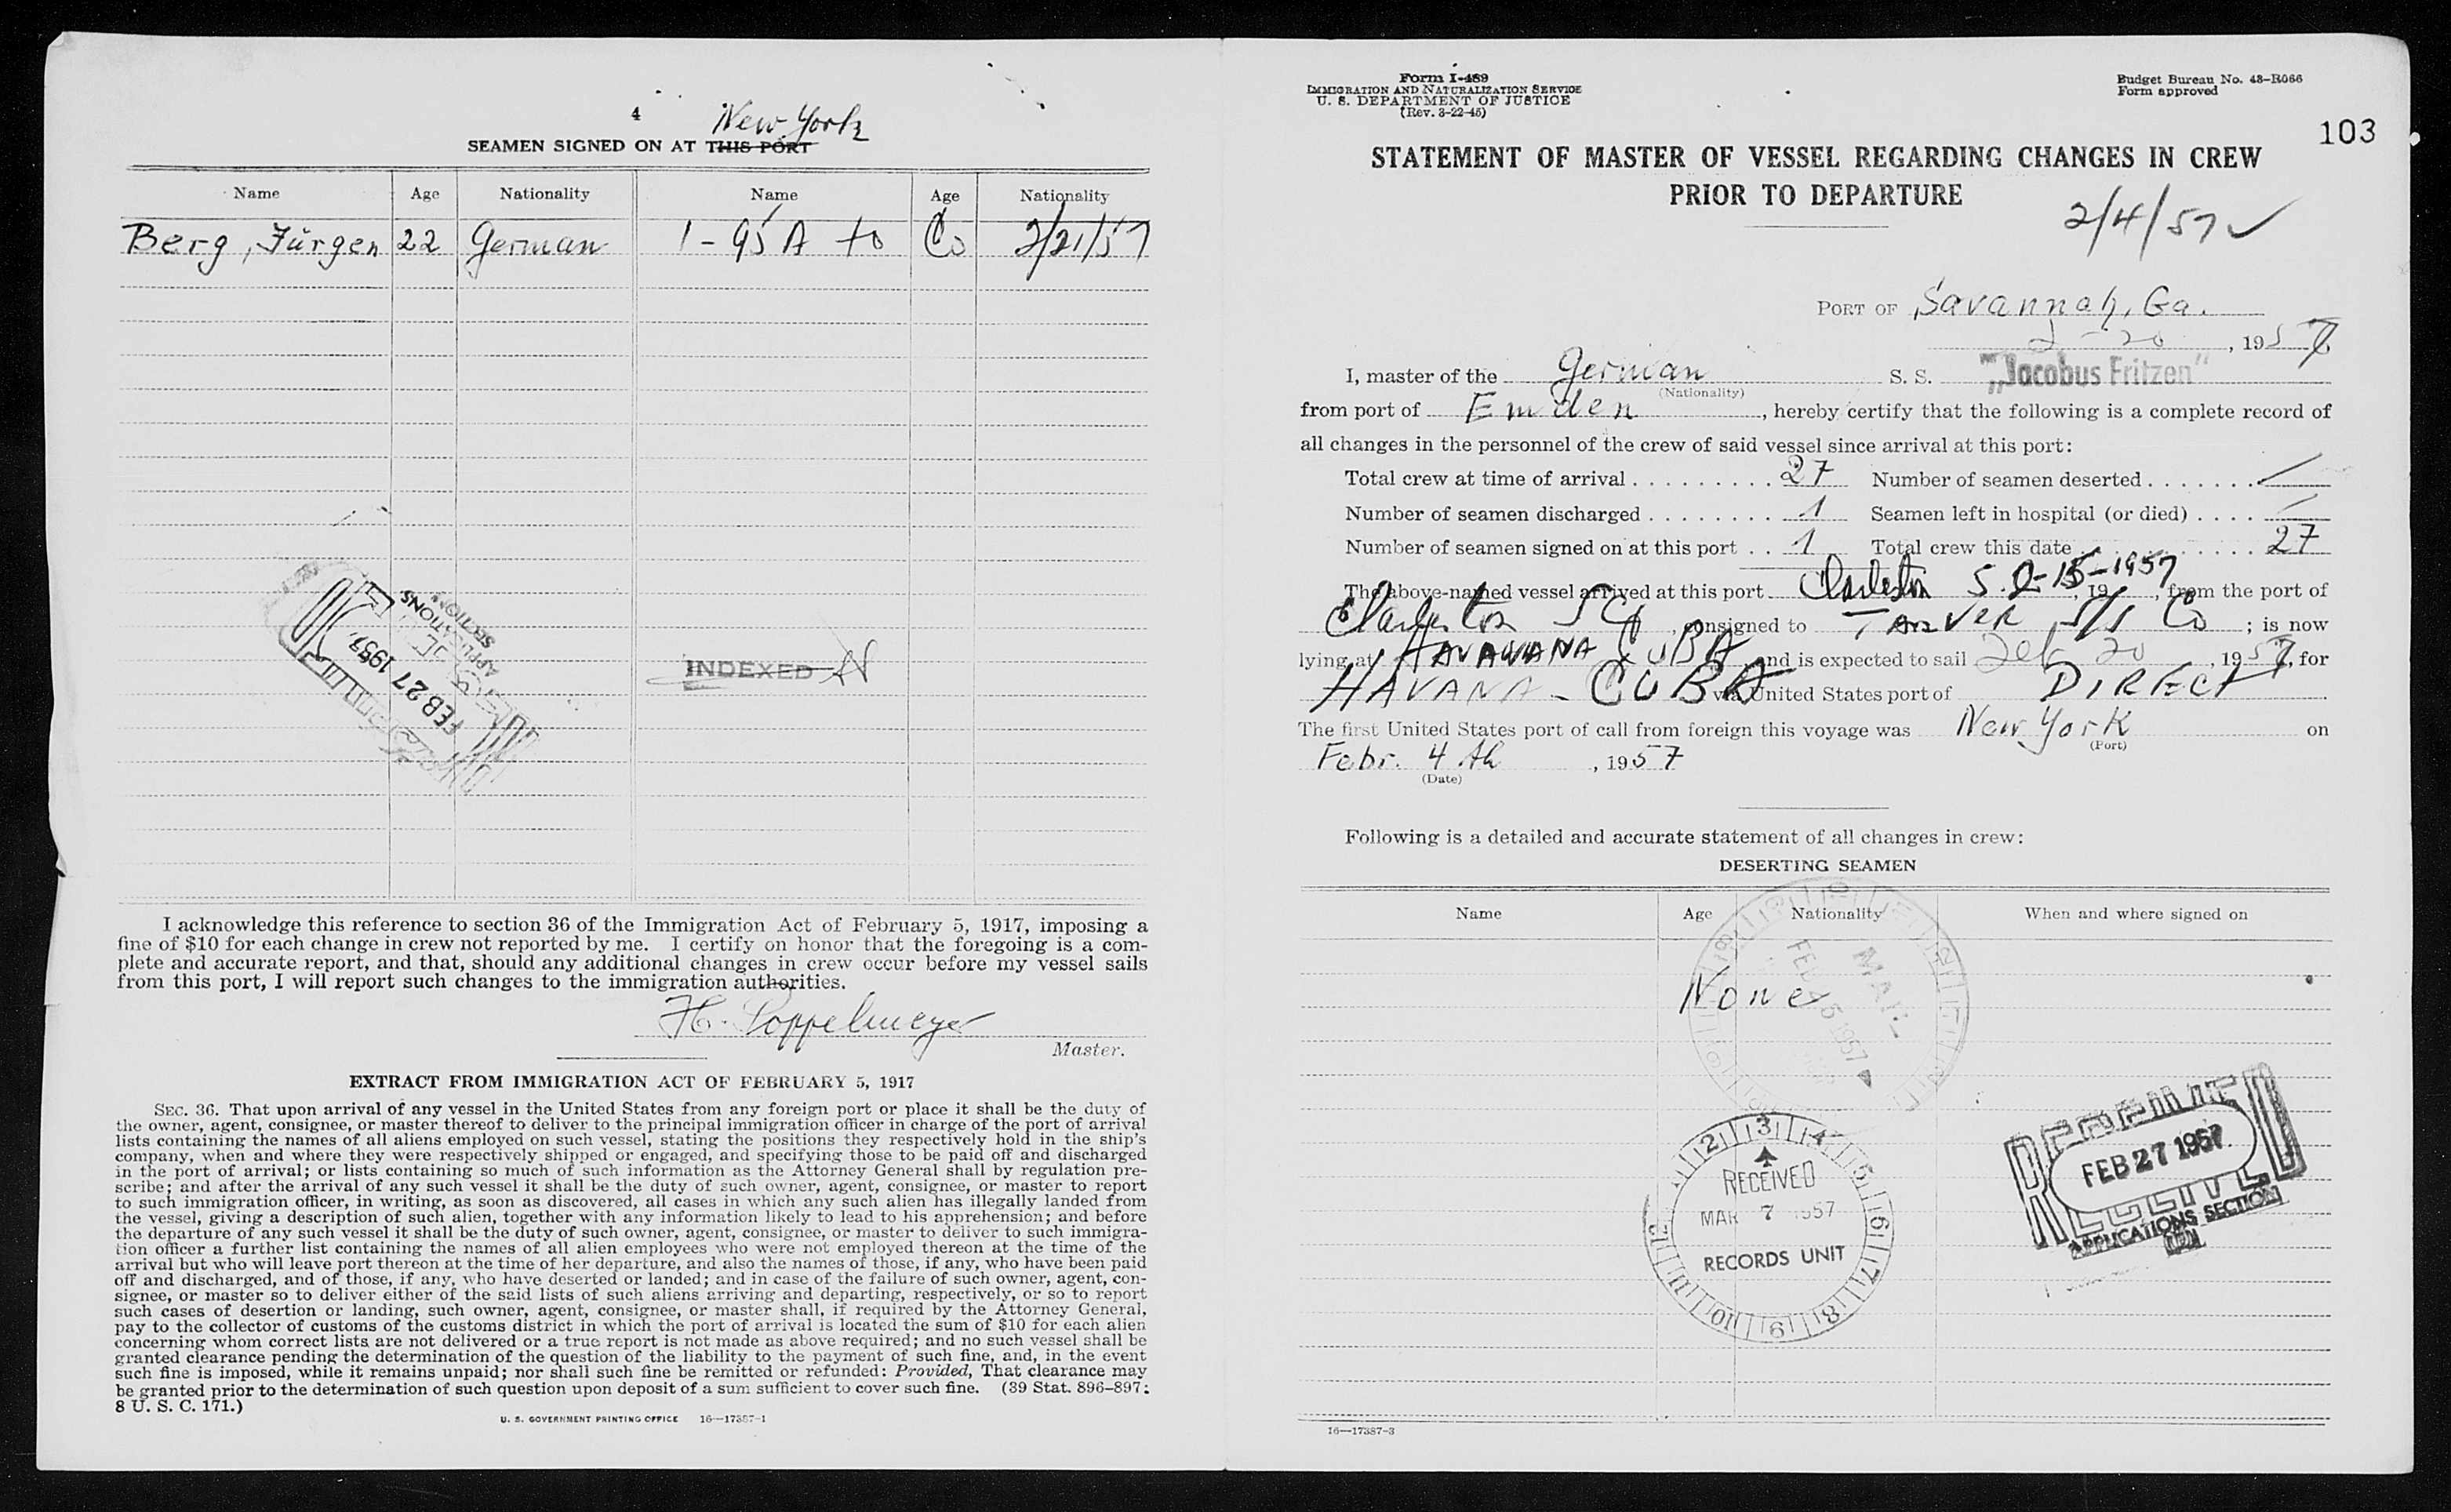 4
New York
SEAMEN SIGNED ON AT THIS PORT
Name Age Nationality Name Age Nationality
Berg, Jürgen 22 German 1-95 A to Co 2/21/57
FEB 27 1957
APPLICATIONS
SECTION
INDEXED
I acknowledge this reference to section 36 of the Immigration Act of February 5, 1917, imposing a
fine of $10 for each change in crew not reported by me. I certify on honor that the foregoing is a com-
plete and accurate report, and that, should any additional changes in crew occur before my vessel sails
from this port, I will report such changes to the immigration authorities.
H. Poppelmeyer
Master.
EXTRACT FROM IMMIGRATION ACT OF FEBRUARY 5, 1917
SEC. 36. That upon arrival of any vessel in the United States from any foreign port or place it shall be the duty of
the owner, agent, consignee, or master thereof to deliver to the principal immigration officer in charge of the port of arrival
lists containing the names of all aliens employed on such vessel, stating the positions they respectively hold in the ship's
company, when and where they were respectively shipped or engaged, and specifying those to be paid off and discharged
in the port of arrival; or lists containing so much of such information as the Attorney General shall by regulation pre-
scribe; and after the arrival of any such vessel it shall be the duty of such owner, agent, consignee, or master to report
to such immigration officer, in writing, as soon as discovered, all cases in which any such alien has illegally landed from
the vessel, giving a description of such alien, together with any information likely to lead to his apprehension; and before
the departure of any such vessel it shall be the duty of such owner, agent, consignee, or master to deliver to such immigra-
tion officer a further list containing the names of all alien employees who were not employed thereon at the time of the
arrival but who will leave port thereon at the time of her departure, and also the names of those, if any, who have been paid
off and discharged, and of those, if any, who have deserted or landed; and in case of the failure of such owner, agent, con-
signee, or master so to deliver either of the said lists of such aliens arriving and departing, respectively, or so to report
such cases of desertion or landing, such owner, agent, consignee, or master shall, if required by the Attorney General,
pay to the collector of customs of the customs district in which the port of arrival is located the sum of $10 for each alien
concerning whom correct lists are not delivered or a true report is not made as above required; and no such vessel shall be
granted clearance pending the determination of the question of the liability to the payment of such fine, and, in the event
such fine is imposed, while it remains unpaid; nor shall such fine be remitted or refunded: Provided, That clearance may
be granted prior to the determination of such question upon deposit of a sum sufficient to cover such fine. (39 Stat. 896-897;
8 U. S. C. 171.)
U. S. GOVERNMENT PRINTING OFFICE 16—17387-1
Form I-489
IMMIGRATION AND NATURALIZATION SERVICE
U. S. DEPARTMENT OF JUSTICE
(Rev. 3-22-45)
Budget Bureau No. 43-R066
Form approved
103
STATEMENT OF MASTER OF VESSEL REGARDING CHANGES IN CREW
PRIOR TO DEPARTURE
2/4/57 ✓
PORT OF Savannah, Ga.
2-20, 1957
I, master of the German S. S. „Jacobus Fritzen"
(Nationality)
from port of Emden, hereby certify that the following is a complete record of
all changes in the personnel of the crew of said vessel since arrival at this port:
Total crew at time of arrival 27 Number of seamen deserted /
Number of seamen discharged 1 Seamen left in hospital (or died) /
Number of seamen signed on at this port 1 Total crew this date 27
The above-named vessel arrived at this port Charleston S. 2-15-1957, 19, from the port of
Charleston SC, consigned to TANVER S/S Co; is now
lying at HAVANA CUBA and is expected to sail Feb 20, 1957, for
HAVANA - CUBA via United States port of DIRECT
The first United States port of call from foreign this voyage was New York on
(Port)
Febr. 4 th, 1957
(Date)
Following is a detailed and accurate statement of all changes in crew:
DESERTING SEAMEN
Name Age Nationality When and where signed on
None
MAIL
FEB 1957
RECEIVED
MAR 7 1957
RECORDS UNIT
RECEIVED
FEB 27 1957
APPLICATIONS SECTION
16—17387-3